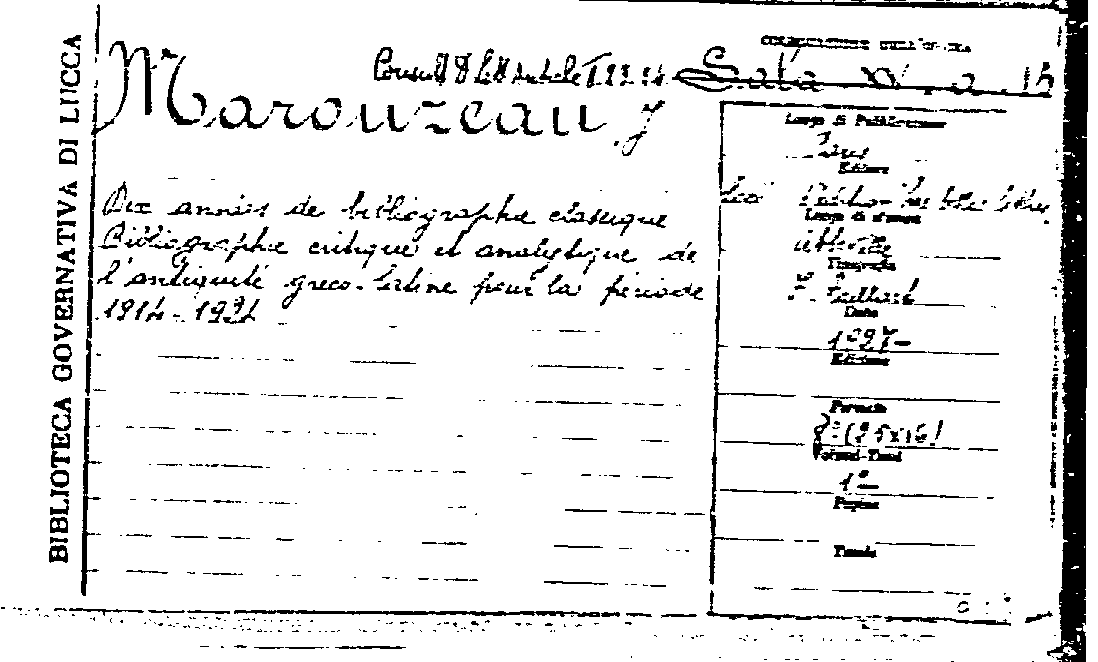 BIBLIOTECA GOVERNATIVA DI LUCCA
COLLOCAZIONE DELL'OPERA
Sala
Marouzeau J
Dix années de bibliographie classique
Bibliographie critique et analytique de
l'antiquité greco-latine pour la période
1914-1924
Luogo di Pubblicazione
Paris
Editore
Les belles lettres
Luogo di stampa
Abbeville
Tipografia
F. Paillart
Data
1927-
Edizione
Formato
8° (25x16)
Volumi-Tomi
1°-
Pagine
Tavole